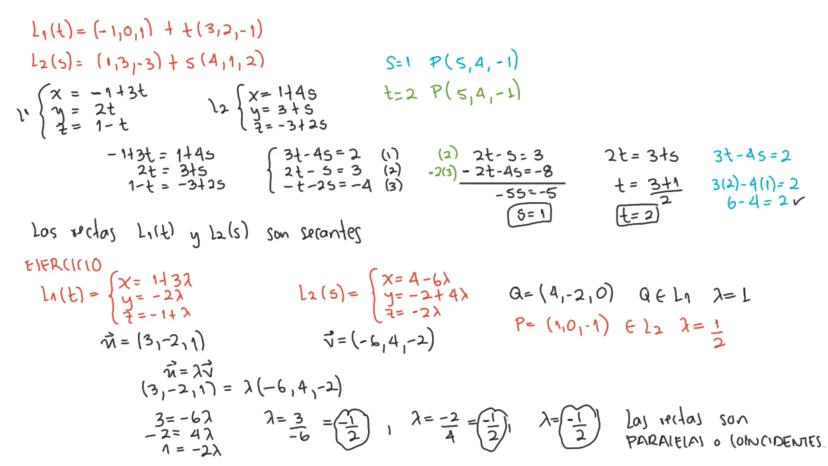 L₁(t) = (-1,0,1) + t(3,2,-1)
L₂(s) = (1,3,-3) + s(4,1,2)
s=1 P(5,4,-1)
t=2 P(5,4,-1)
L₁ { x = -1+3t
y = 2t
z = 1-t
L₂ { x = 1+4s
y = 3+s
z = -3+2s
-1+3t = 1+4s
2t = 3+s
1-t = -3+2s
{ 3t-4s = 2 (1)
2t - s = 3 (2)
-t-2s = -4 (3)
(2) 2t - s = 3
-2(3) -2t-4s = -8
-5s = -5
s = 1
2t = 3+s
t = (3+1)/2
t = 2
3t-4s = 2
3(2)-4(1) = 2
6-4 = 2 ✓
Las rectas L₁(t) y L₂(s) son secantes
EJERCICIO
L₁(t) = { x = 1+3λ
y = -2λ
z = -1+λ
L₂(s) = { x = 4-6λ
y = -2+4λ
z = -2λ
Q = (4,-2,0) Q ∈ L₁ λ = 1
P = (1,0,-1) ∈ L₂ λ = 1/2
u⃗ = (3,-2,1)
v⃗ = (-6,4,-2)
u⃗ = λv⃗
(3,-2,1) = λ(-6,4,-2)
3 = -6λ
-2 = 4λ
1 = -2λ
λ = 3/-6 = -1/2 , λ = -2/4 = -1/2 , λ = -1/2
Las rectas son
PARALELAS o COINCIDENTES.